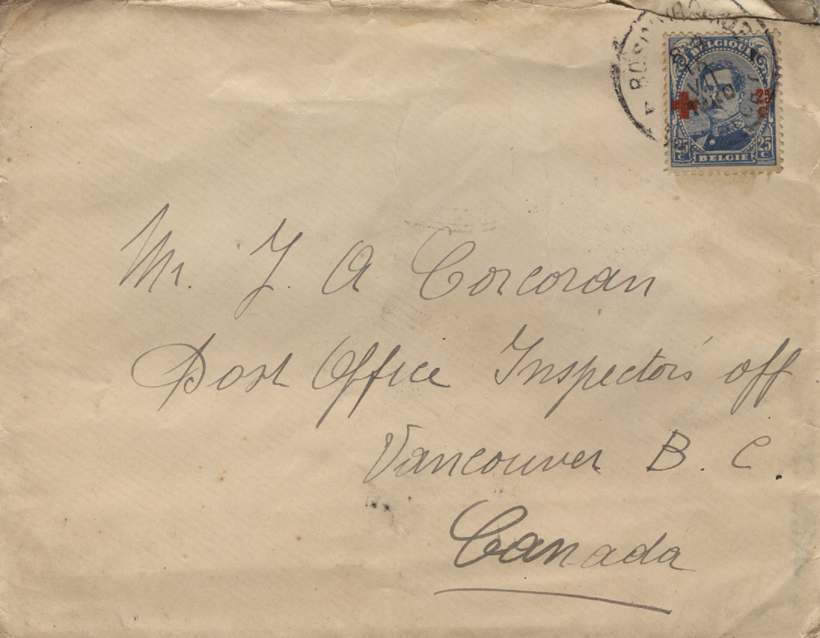 BELGIQUE
25 C 25 C
BELGIE
Mr. J. A Corcoran
Post Office Inspector's off
Vancouver B. C.
Canada